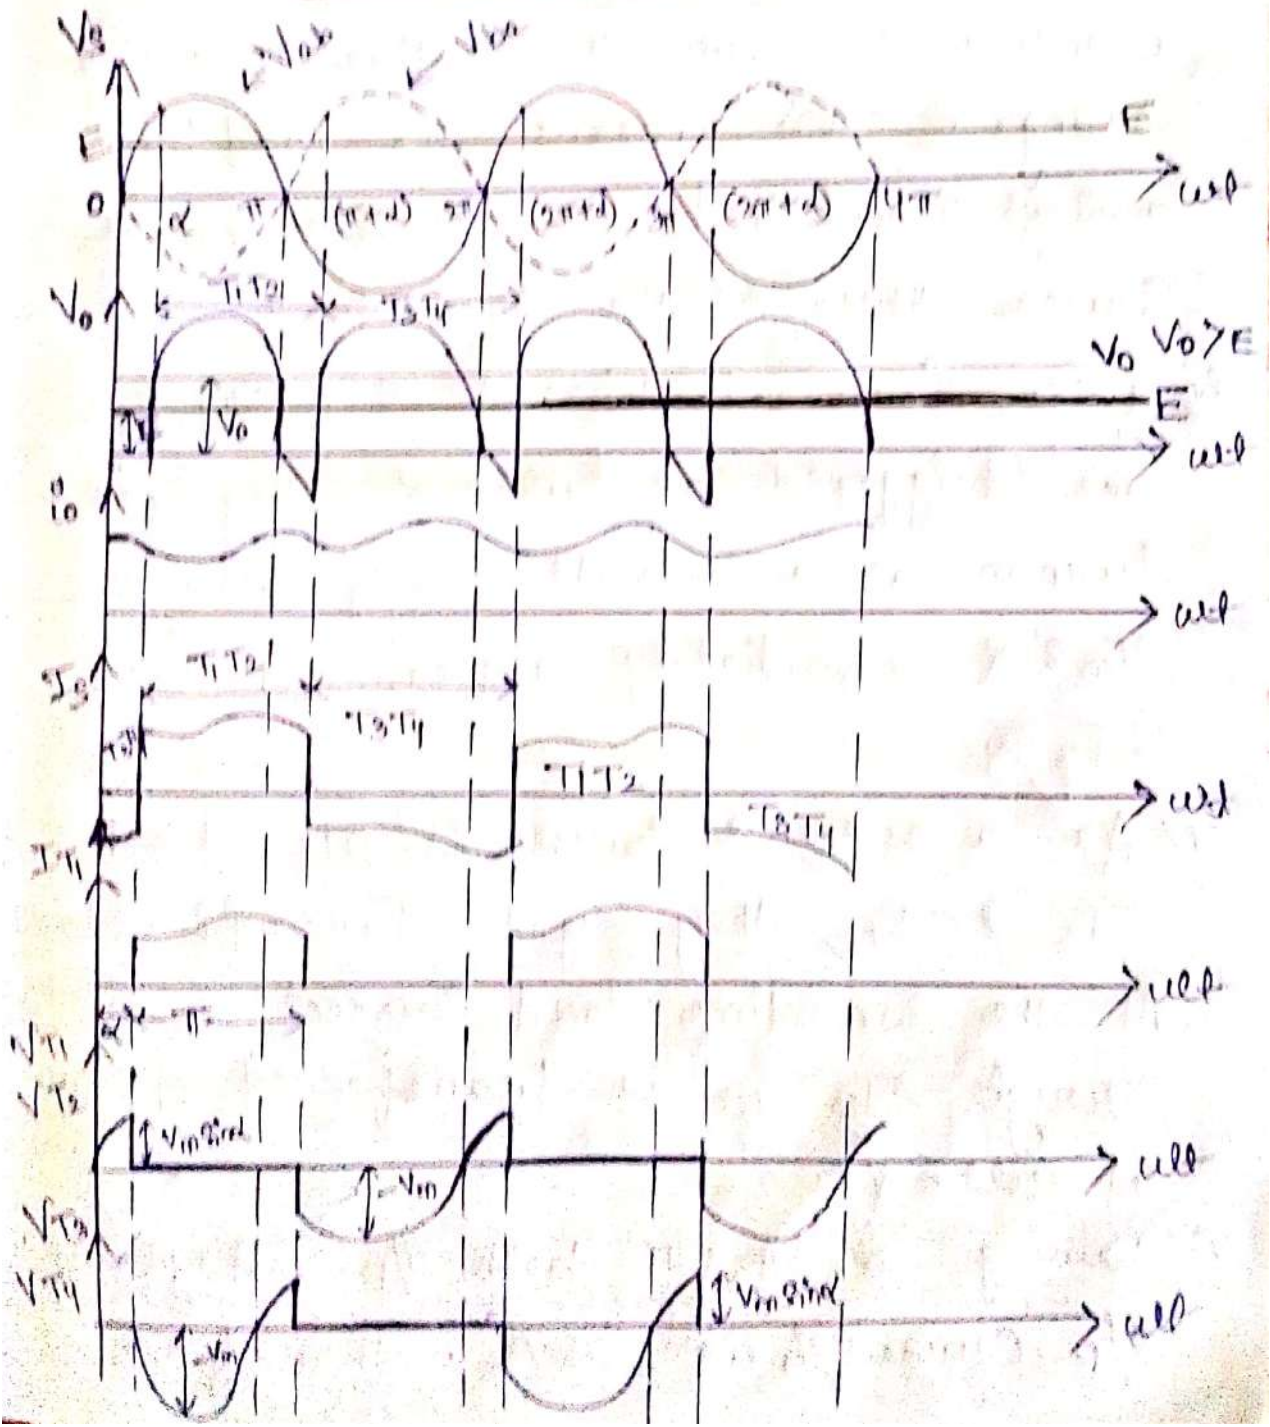 Vs
Vab
Vba
E
E
0
α π (π+α) 2π (2π+α) 3π (3π+α) 4π
ωt
T1T2
T3T4
V0
V0 V0>E
V0
E
ωt
i0
ωt
Is
T1T2
T3T4
T1T2
T3T4
ωt
IT1
ωt
α π
VT1
VT2
Vm sinα
Vm
ωt
VT3
VT4
Vm sinα
-Vm
ωt